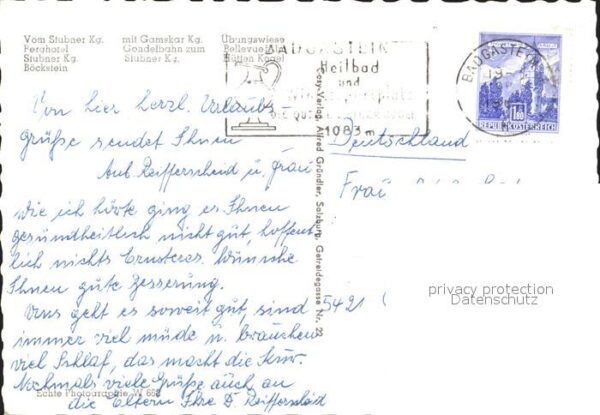 Vom Stubner Kg. mit Gamskar Kg. Übungswiese
Berghotel Gondelbahn zum Bellevue
Stubner Kg. Stubner Kg. Hütten Kogel
Böckstein
BADGASTEIN
Heilbad
und
Wintersportplatz
1083 m
BADGASTEIN
1.80
REPUBLIK ÖSTERREICH
Von hier herzl. Urlaubs-
grüße sendet Ihnen
Reifferscheid u. Frau
Wie ich hörte ging es Ihnen
gesundheitlich nicht gut, hoffent
lich nichts Ernsteres. Wünsche
Ihnen gute Besserung.
Uns geht es soweit gut, sind
immer viel müde u. brauchen
viel Schlaf, das macht die Kur.
Nochmals viele Grüße auch an
die Eltern Ihre Reifferscheid
Echte Photographie W 662
Cosy-Verlag, Alfred Gründler, Salzburg, Getreidegasse Nr. 22
Deutschland
Frau
5421
privacy protection
Datenschutz